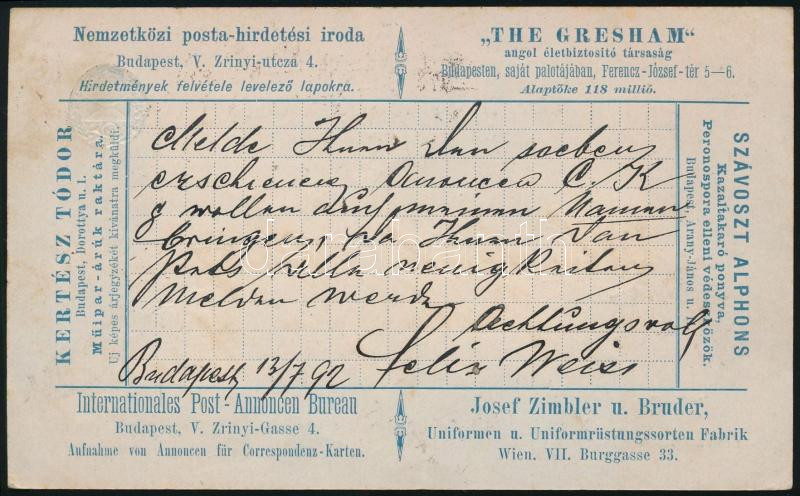 Nemzetközi posta-hirdetési iroda
Budapest, V. Zrinyi-utcza 4.
Hirdetmények felvétele levelező lapokra.
„THE GRESHAM“
angol életbiztositó társaság
Budapesten, saját palotájában, Ferencz-József-tér 5—6.
Alaptőke 118 millió.
KERTÉSZ TÓDOR
Budapest, Dorottya u. 1.
Műipar-áruk raktára.
Uj képes árjegyzékét kivánatra megküldi.
Melde Ihnen den soeben
erschienen Anoncen C. K
wollen auf meinen Namen
bringen,
Ihnen
Melden werde
Achtungsvoll
Budapest, 13/7 92 Felix Weiss
SZÁVOSZT ALPHONS
Kazaltakaró ponyva,
Peronospora elleni védeszközök.
Budapest, Arany-János u.
Internationales Post-Annoncen Bureau
Budapest, V. Zrinyi-Gasse 4.
Aufnahme von Annoncen für Correspondenz-Karten.
Josef Zimbler u. Bruder,
Uniformen u. Uniformrüstungssorten Fabrik
Wien. VII. Burggasse 33.
darabanth